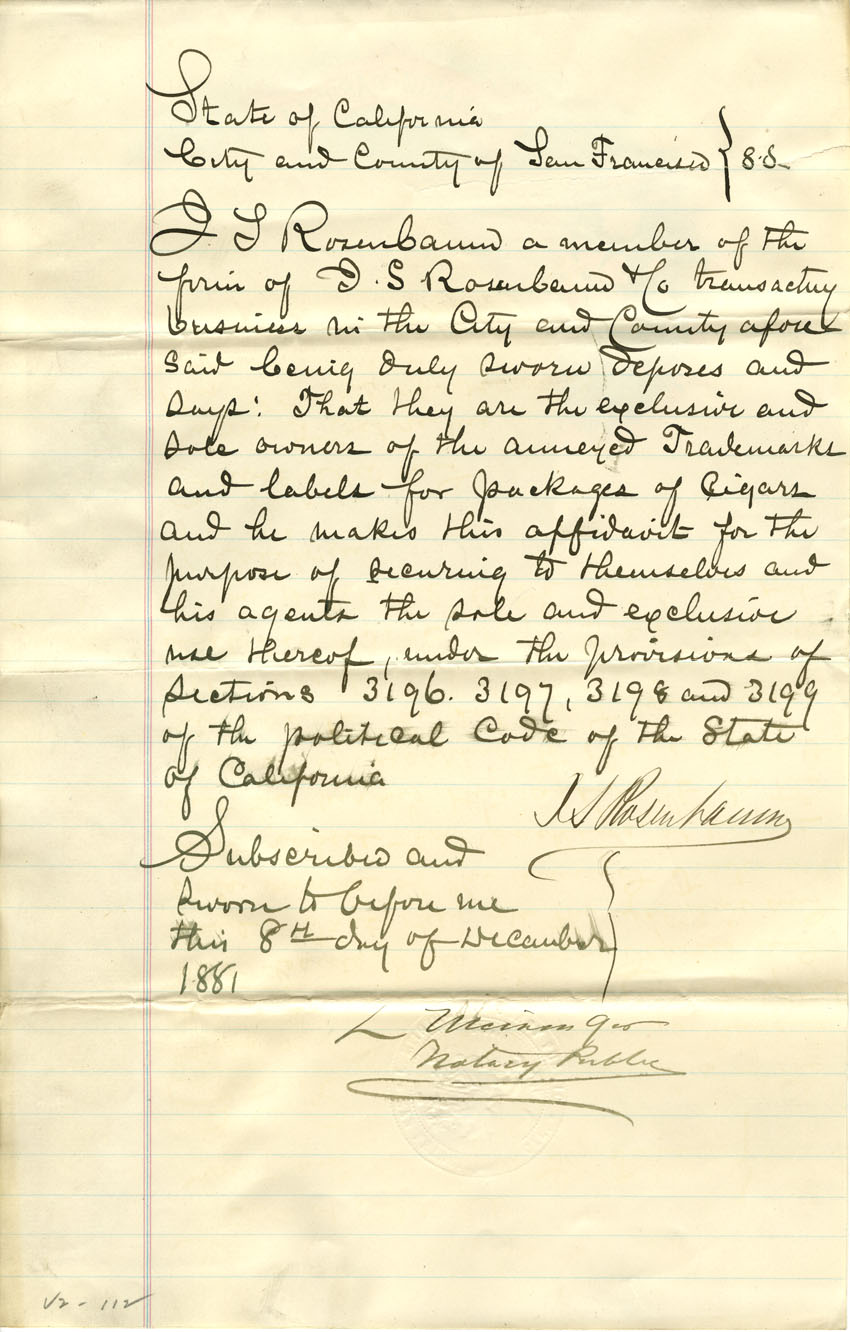 State of California
City and County of San Francisco } S.S.
I S Rosenbaum a member of the
firm of I. S Rosenbaum & Co transacting
business in the City and County afore
said being duly sworn deposes and
says: That they are the exclusive and
sole owners of the annexed Trademarks
and labels for packages of Cigars
and he makes this affidavit for the
purpose of securing to themselves and
his agents the sole and exclusive
use thereof, under the provisions of
sections 3196. 3197, 3198 and 3199
of the political Code of the State
of California
I S Rosenbaum
Subscribed and
sworn to before me
this 8th day of December
1881
L
Notary Public
V2-112